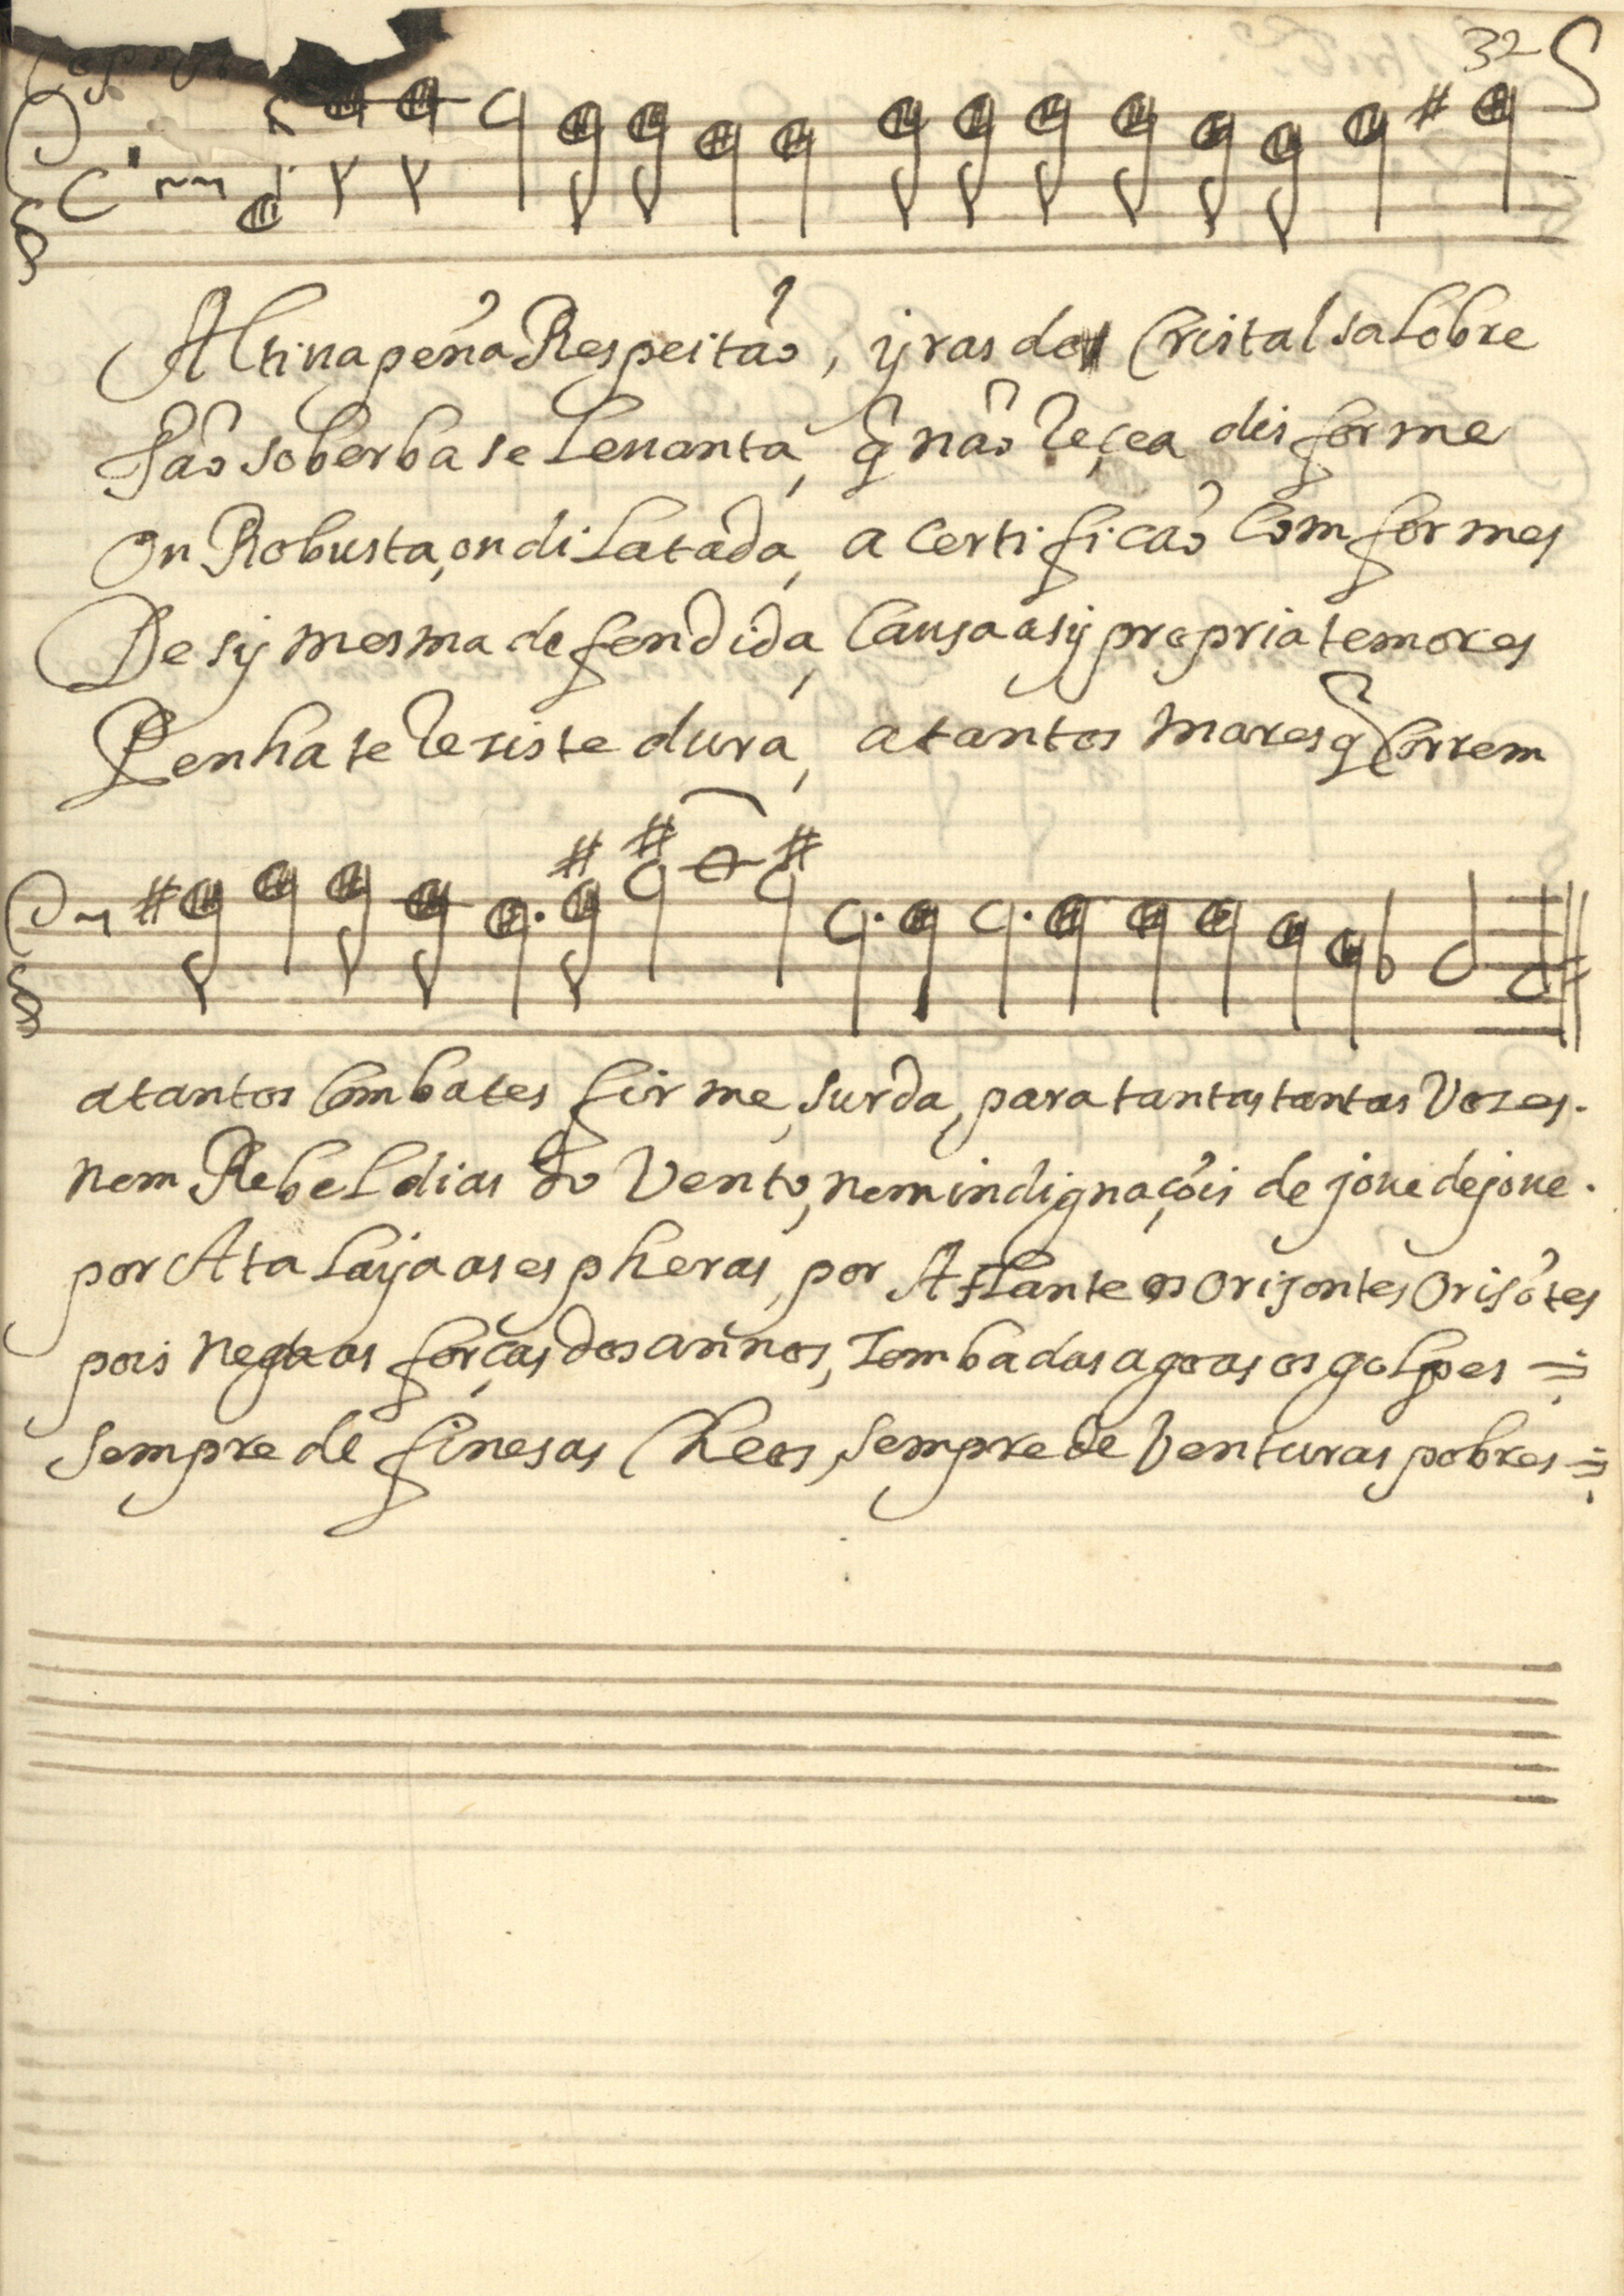 32
Altiua pena Respeitaõ, yras do Cristal salobre
Taõ soberba se leuanta, q̃ naõ Reçea disforme
ou Robusta, ou dilatada, a certificaõ Comformes
De sy mesma defendida, Causa a sy propria temores
Penha se Resiste dura, a tantos mares q̃ Correm
atantos Combates firme, surda, para tantas tantas Vozes.
nem Rebeldias do Vento, nem indignaçõis de joue de joue.
por Atalaya as espheras, por Atlante os orijontes Orisõtes
pois nega as forças dos annos, Zomba das agoas os golpes
Sempre de finesas Cheos, sempre de Venturas pobres